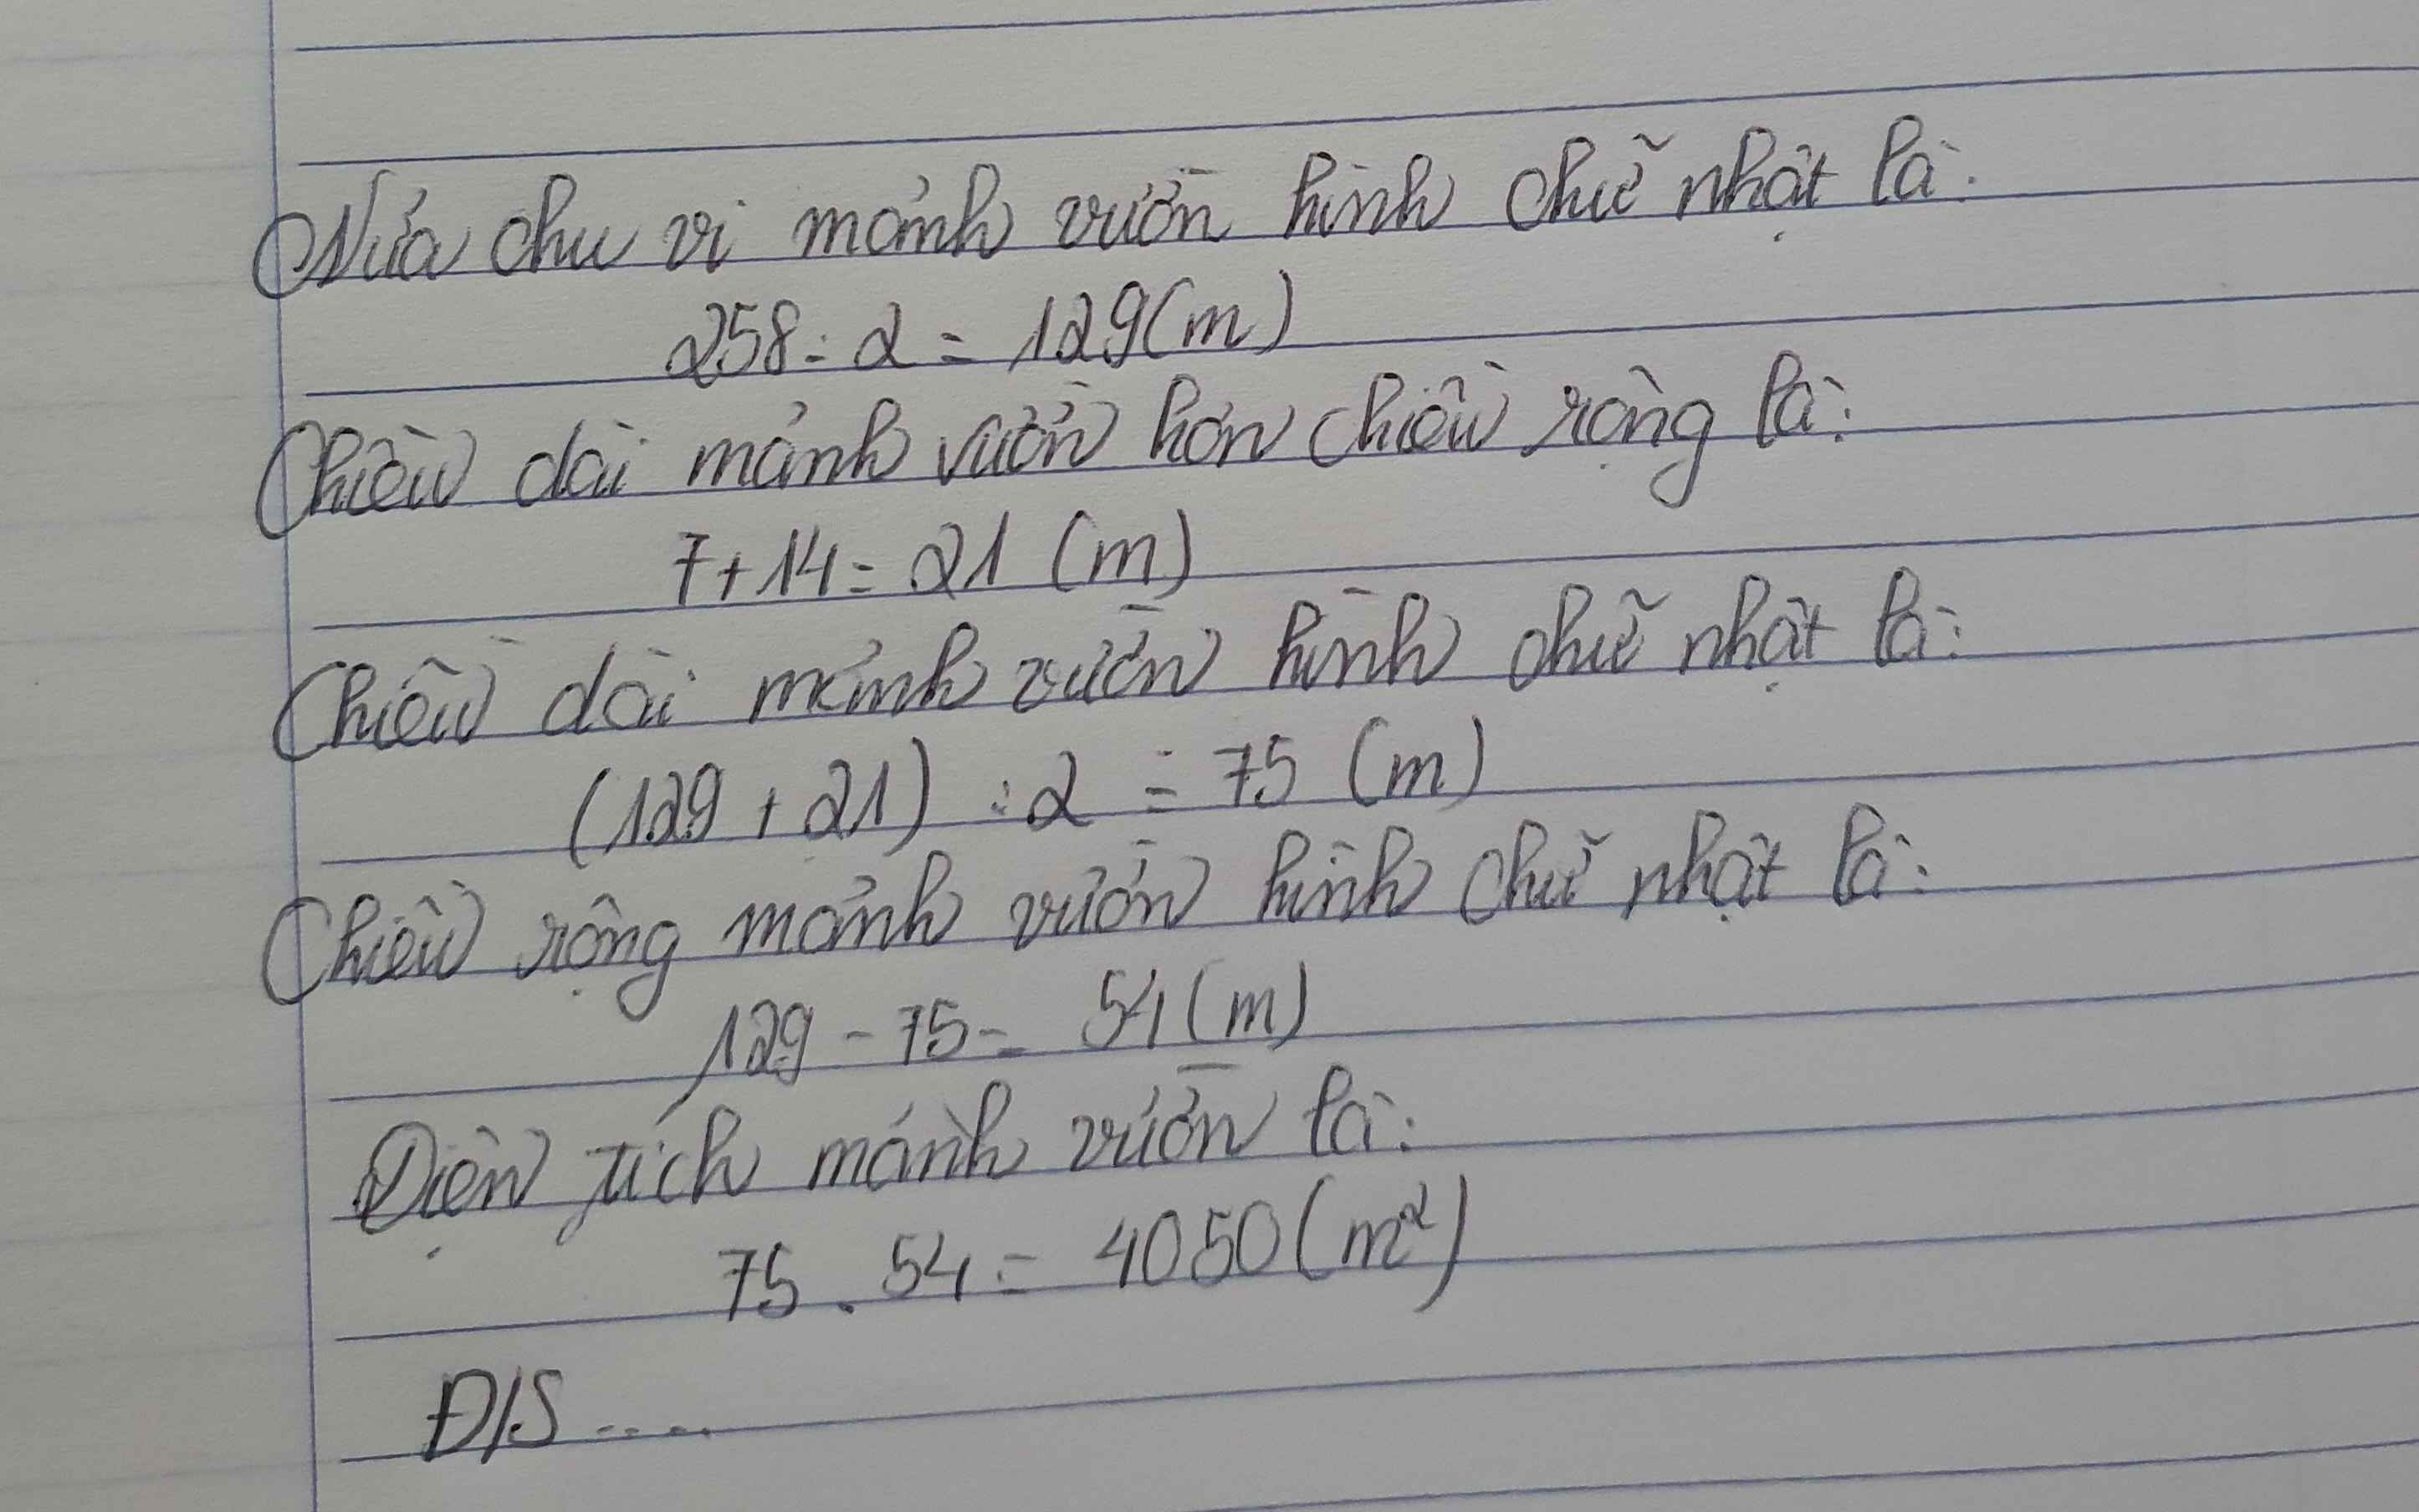 Nửa chu vi mảnh vườn hình chữ nhật là:
258 : 2 = 129 (m)
Chiều dài mảnh vườn hơn chiều rộng là:
7 + 14 = 21 (m)
Chiều dài mảnh vườn hình chữ nhật là:
(129 + 21) : 2 = 75 (m)
Chiều rộng mảnh vườn hình chữ nhật là:
129 - 75 = 54 (m)
Diện tích mảnh vườn là:
75 . 54 = 4050 (m²)
Đ/S .....